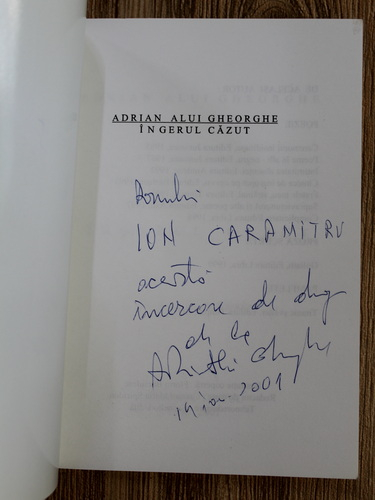 ADRIAN ALUI GHEORGHE
ÎNGERUL CĂZUT
Domnului
ION CARAMITRU
această
încercare de
de la
A Alui Gheorghe
19 ian. 2001